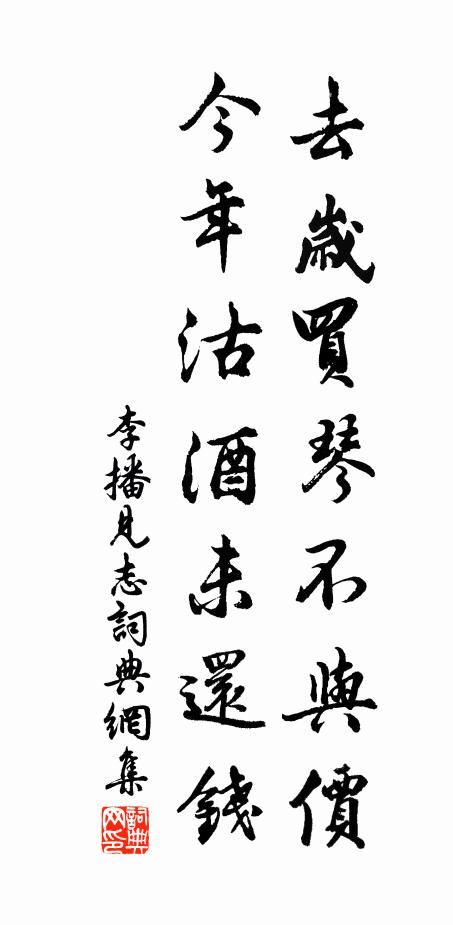 去歲買琴不與價
今年沽酒未還錢
李播見志詞典網集
詞典網印